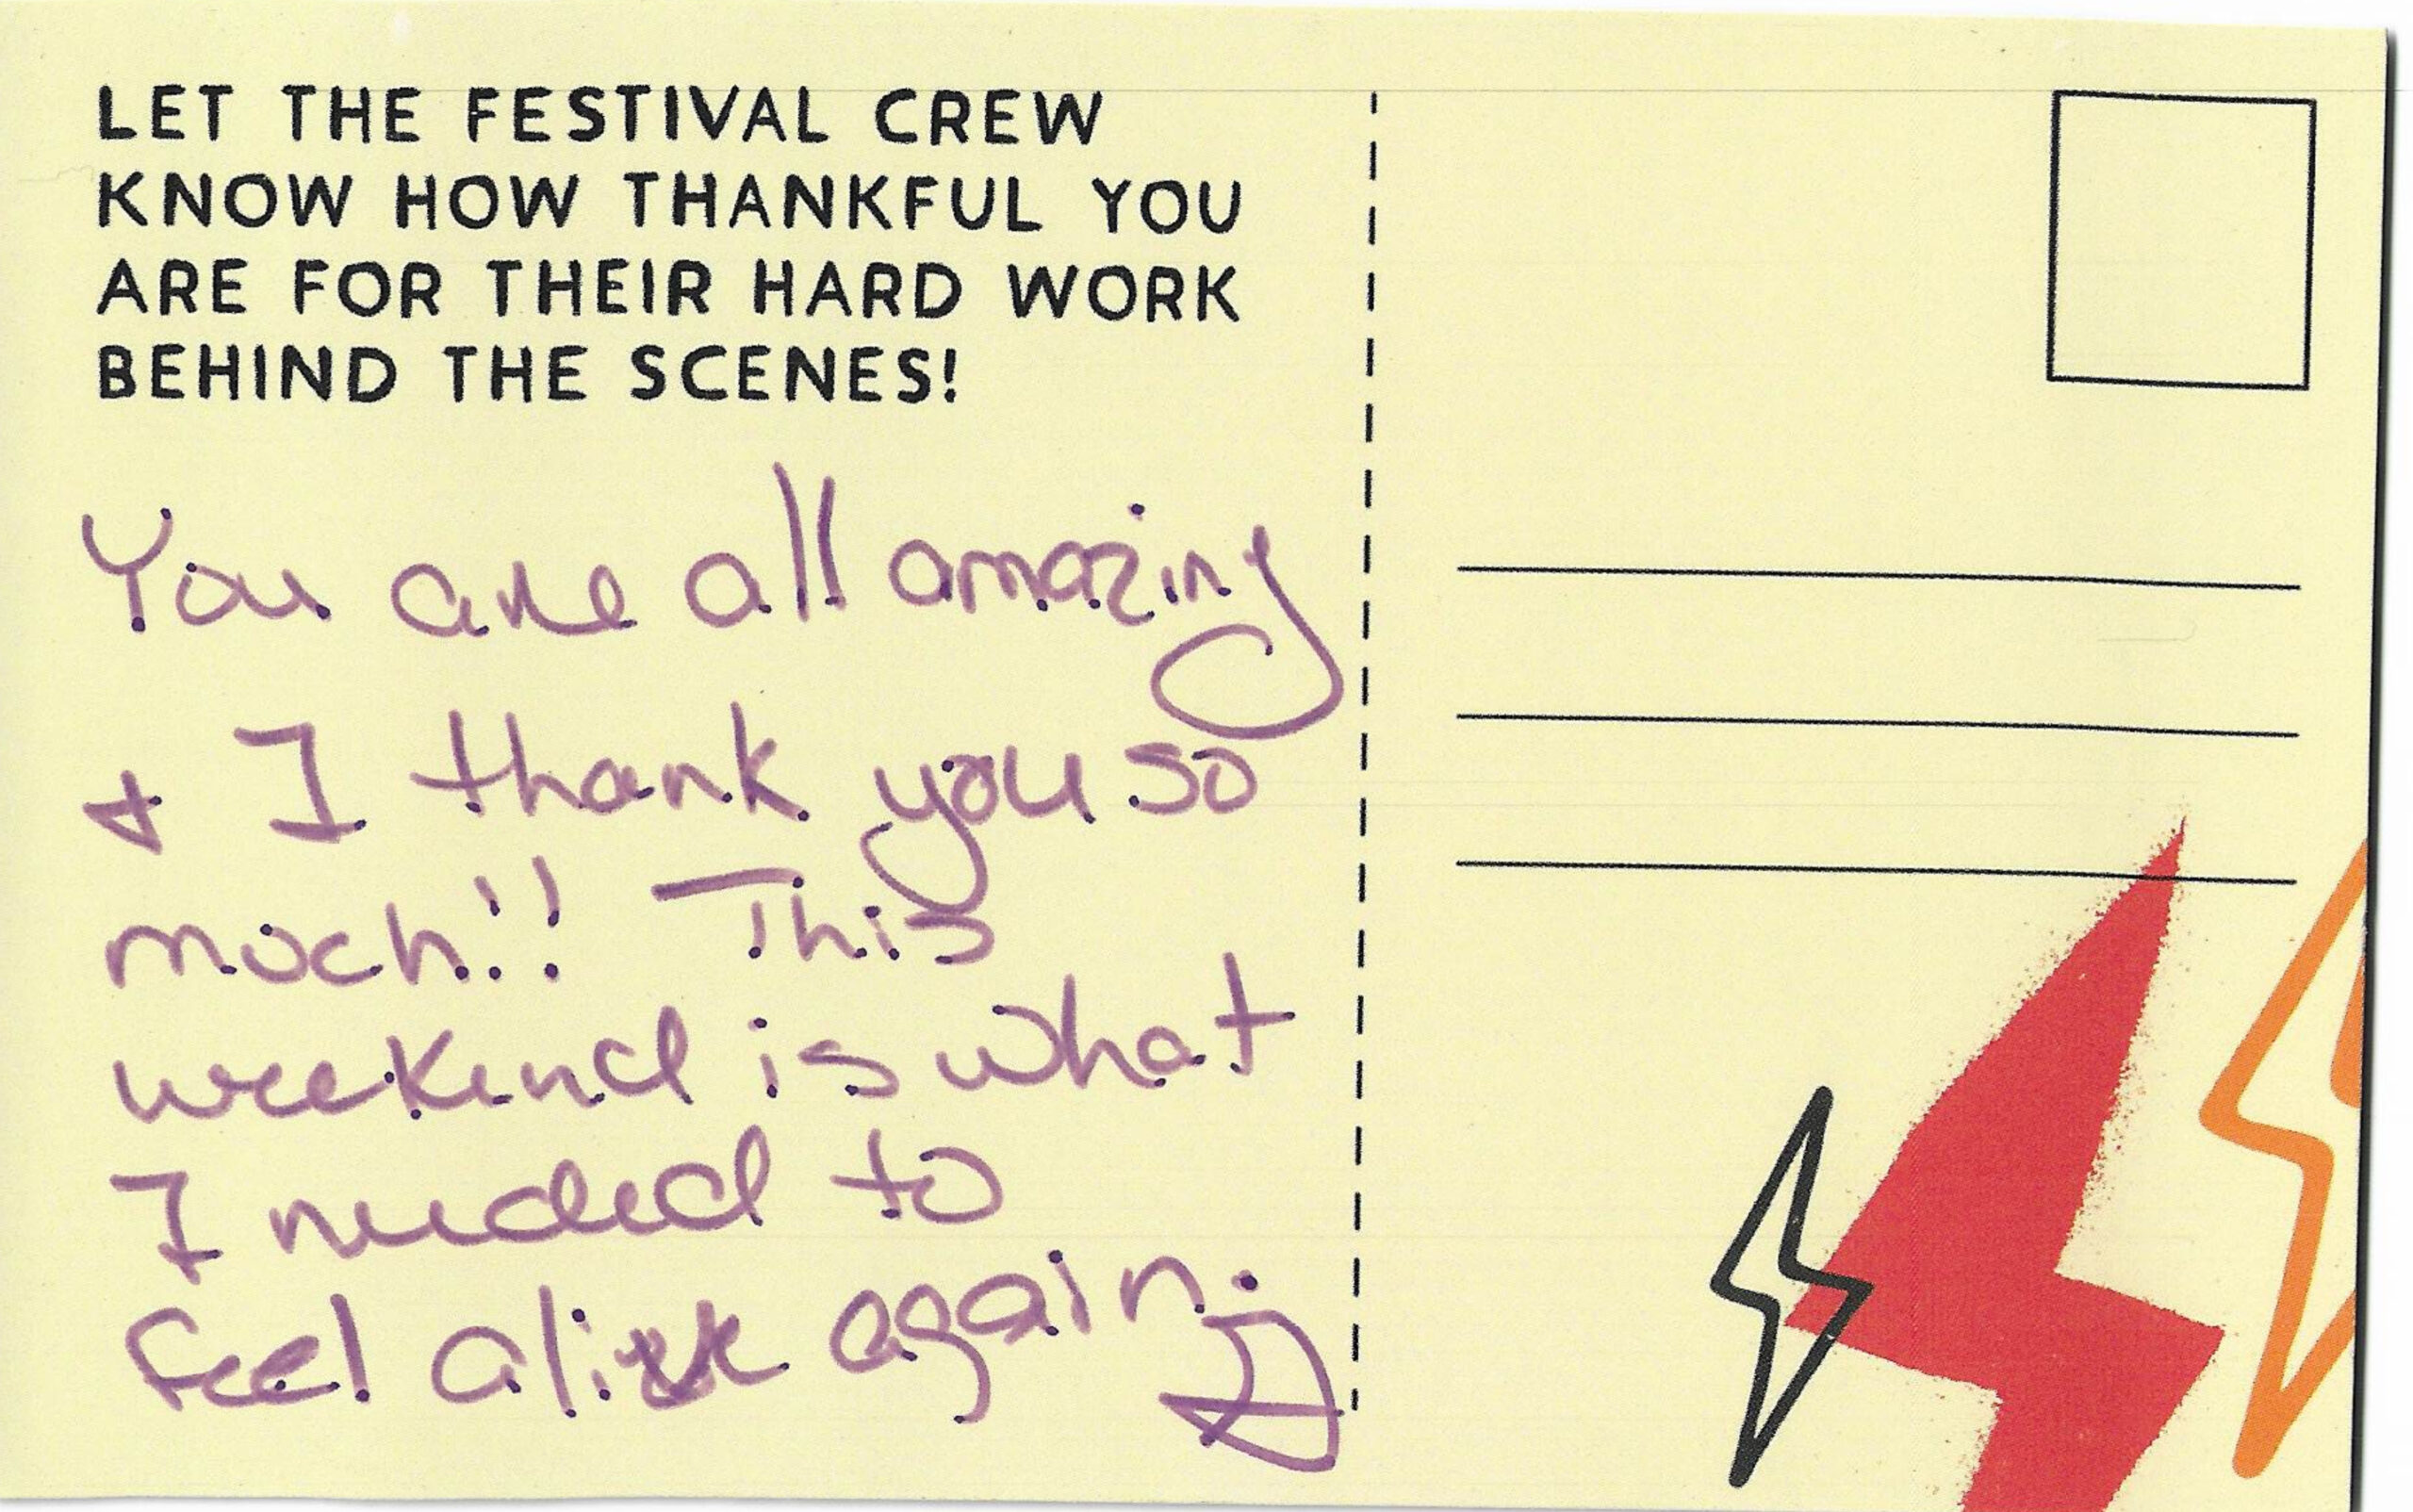 LET THE FESTIVAL CREW
KNOW HOW THANKFUL YOU
ARE FOR THEIR HARD WORK
BEHIND THE SCENES!
You are all amazing
+ I thank you so
much!! This
weekend is what
I needed to
feel alive again.